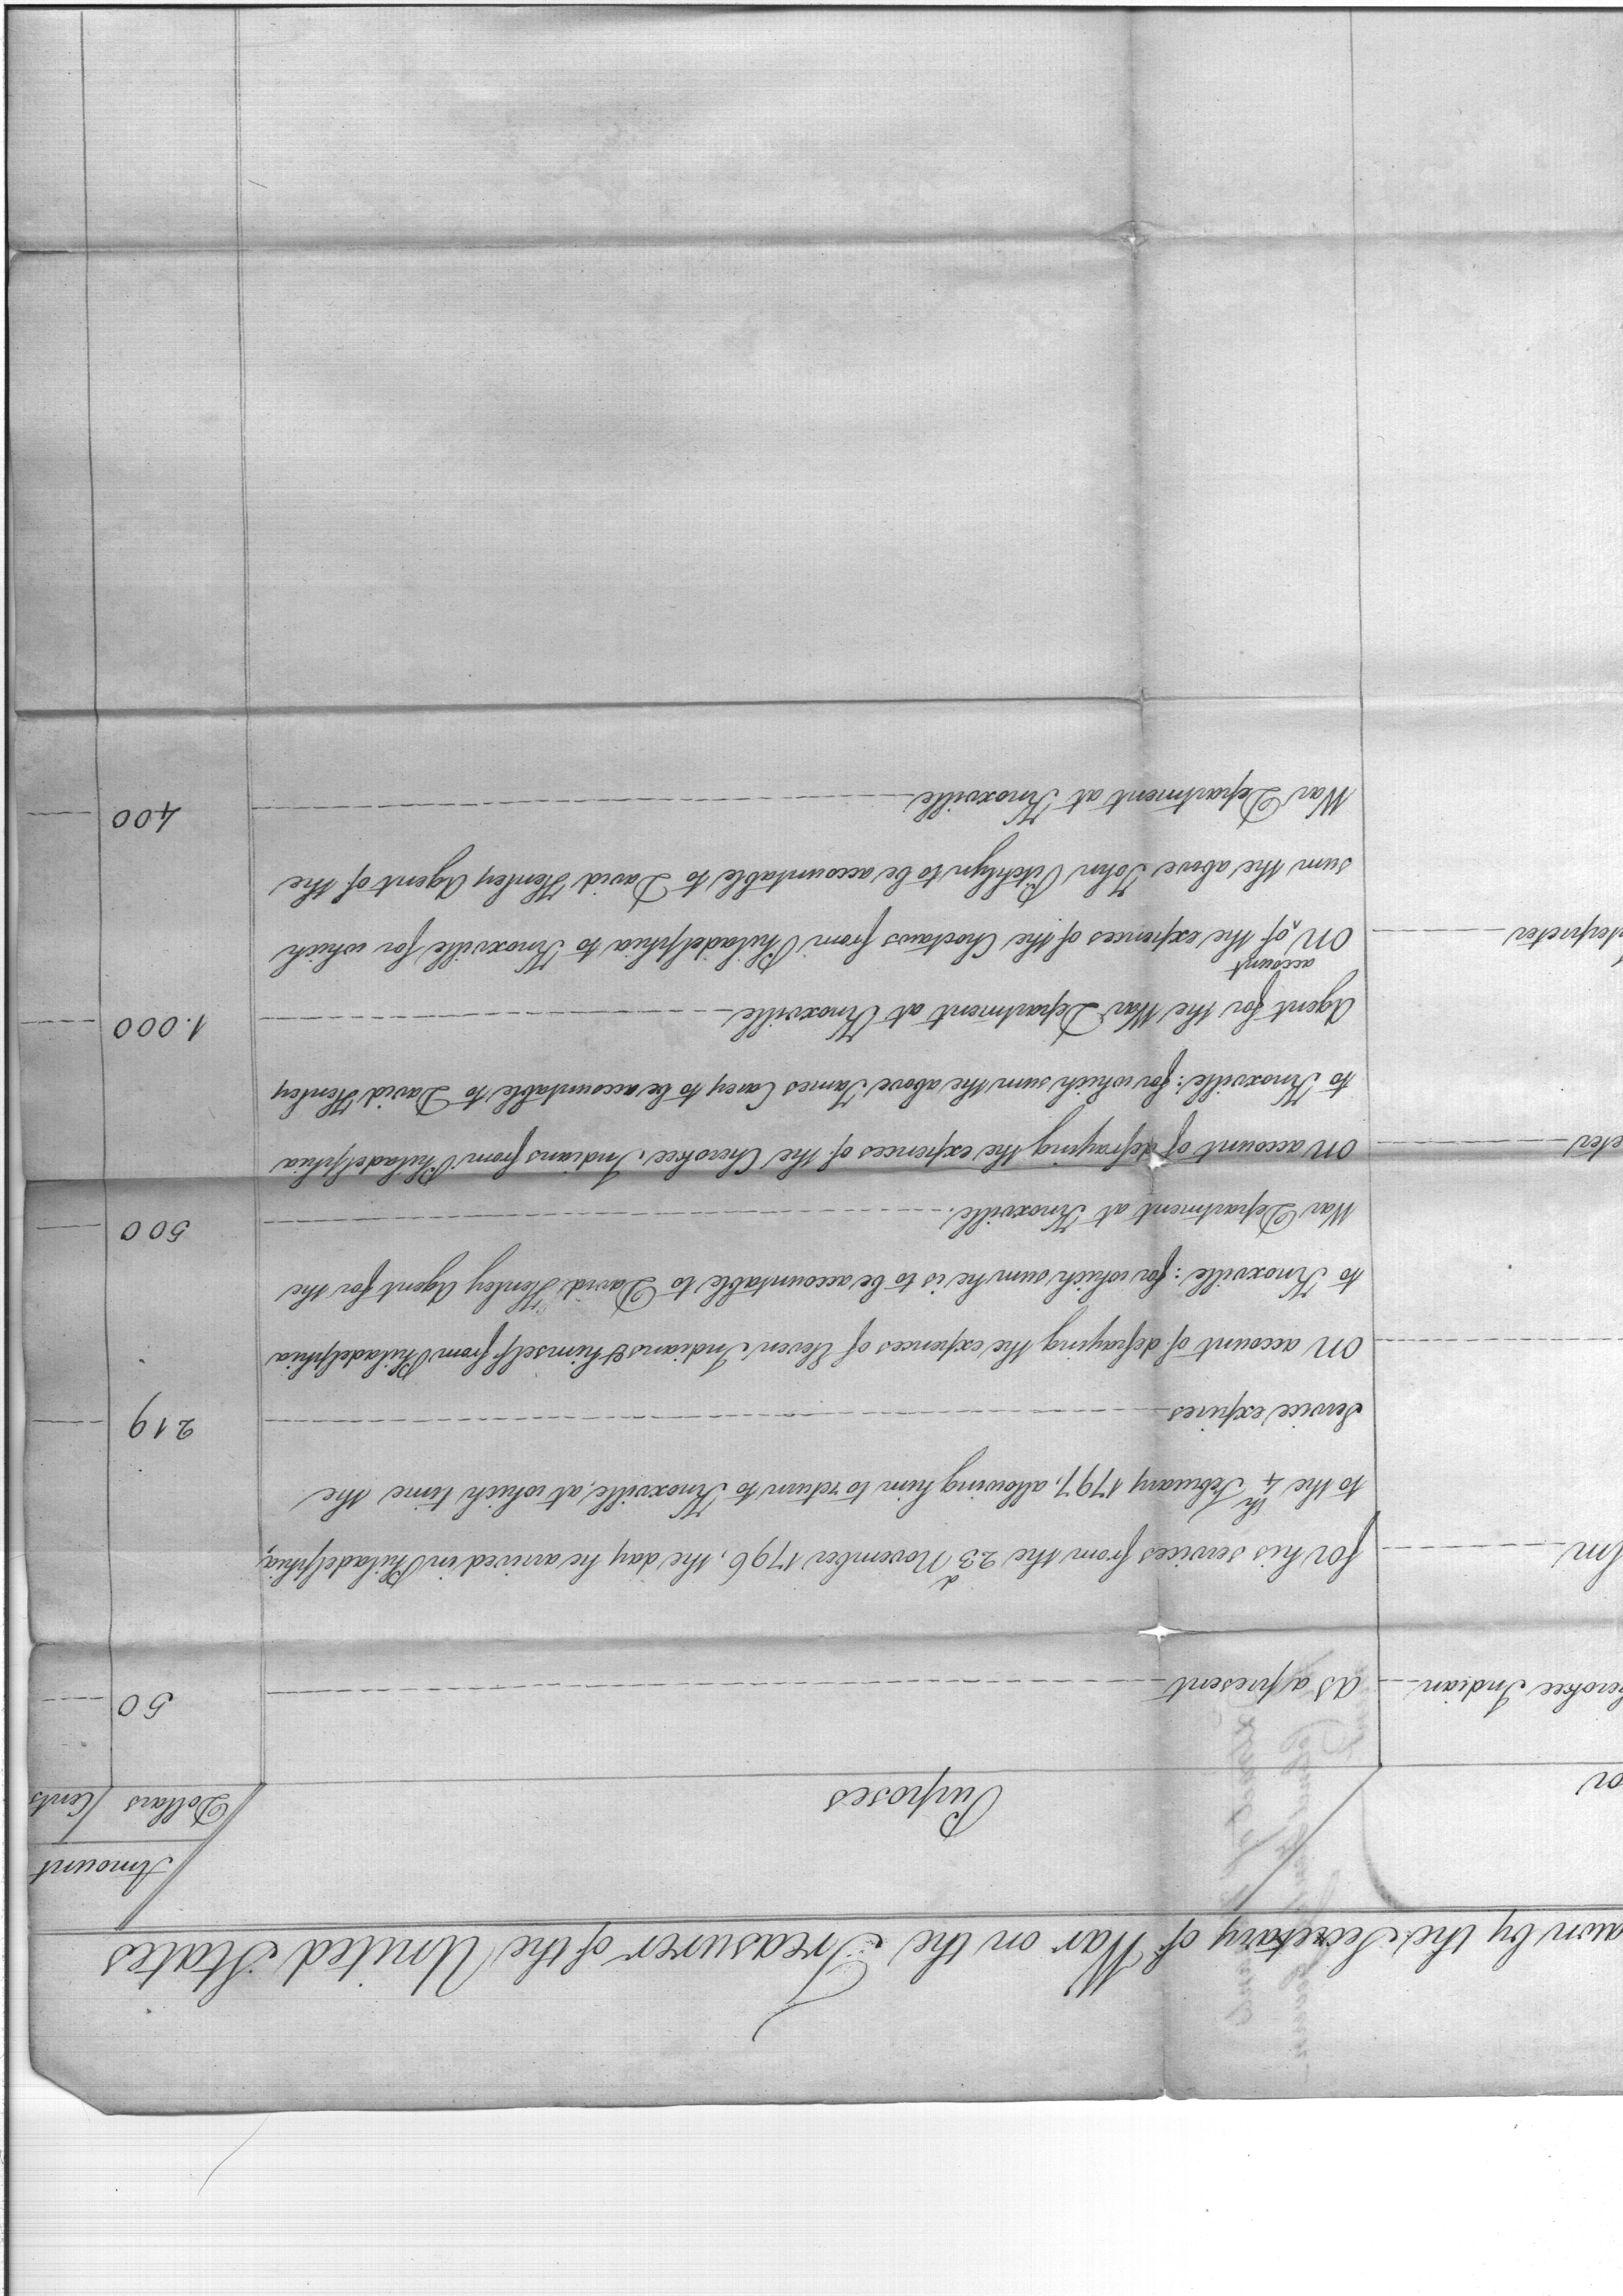 awn by the Secretary of War on the Treasurer of the United States
Amount
or Purposes Dollars Cents
herokee Indian As a present 50
for his services from the 23d November 1796, the day he arrived in Philadelphia,
to the 4th February 1797, allowing him to return to Knoxville, at which time the
Service expires 219
on account of defraying the expences of Eleven Indians & himself from Philadelphia
to Knoxville: for which sum he is to be accountable to David Henley Agent for the
War Department at Knoxville. 500
eter on account of defraying the expences of the Cherokee Indians from Philadelphia
to Knoxville: for which sum the above James Carey to be accountable to David Henley
Agent for the War Department at Knoxville 1.000
terpreter on account of the expences of the Choctaws from Philadelphia to Knoxville for which
sum the above John Pitchlyn to be accountable to David Henley Agent of the
War Department at Knoxville 400